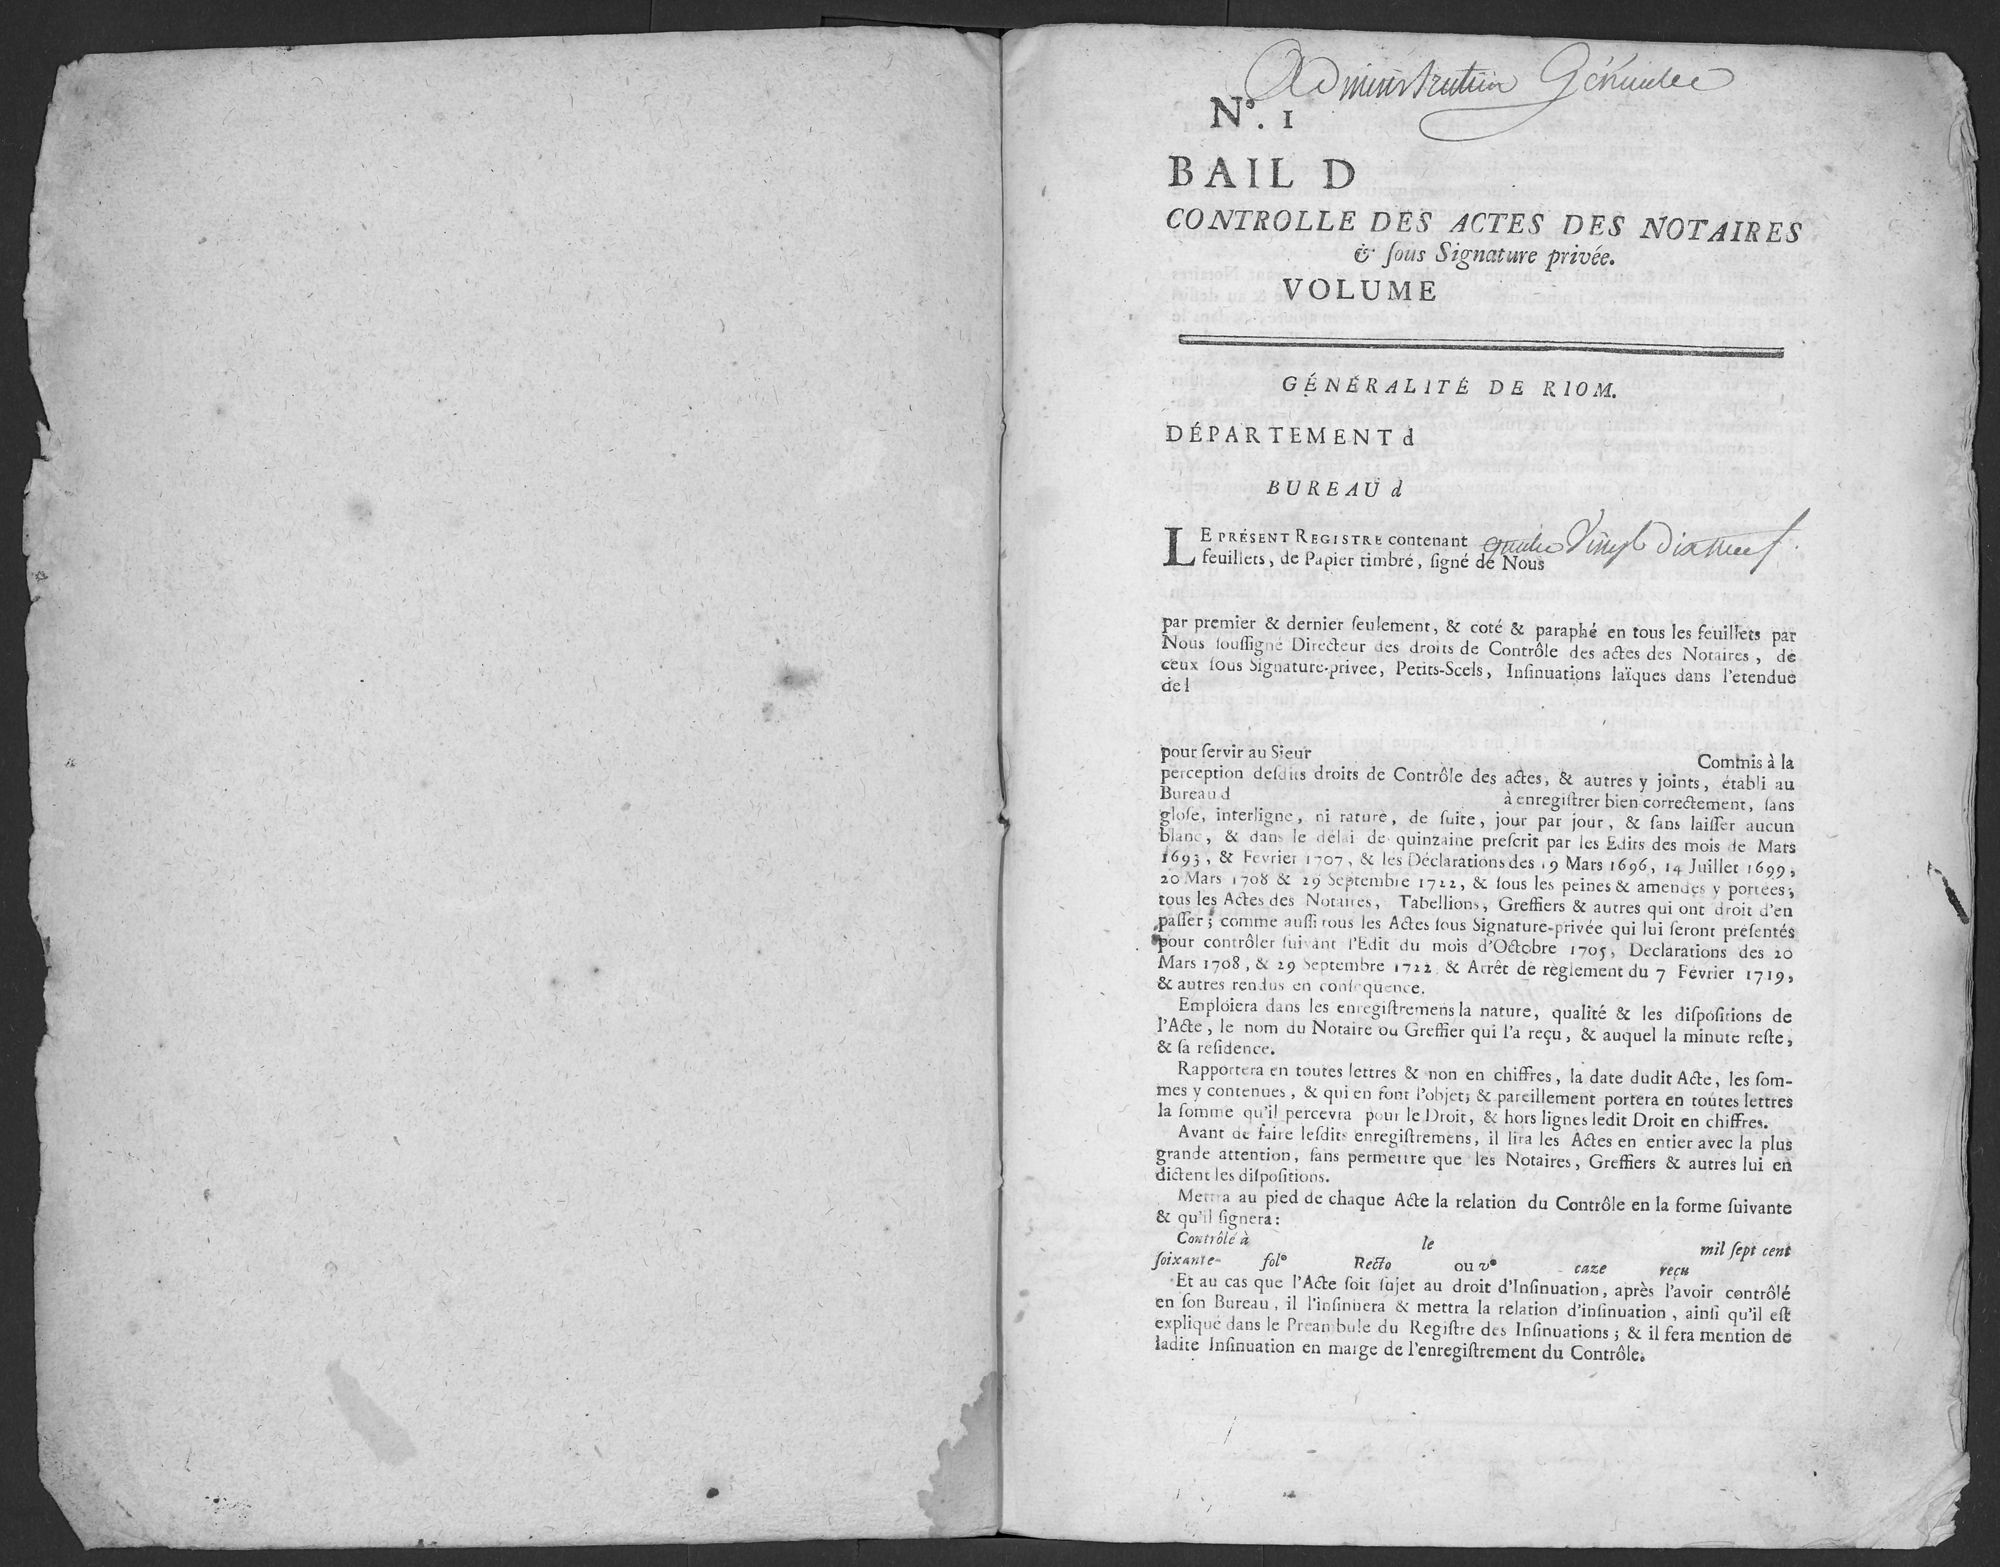 Administration Généralle
N°. 1
BAIL D
CONTROLLE DES ACTES DES NOTAIRES
& ſous Signature privée.
VOLUME
GÉNÉRALITÉ DE RIOM.
DÉPARTEMENT d
BUREAU d
LE PRÉSENT REGISTRE contenant quatre Vingt Dix Neuf
feuillets, de Papier timbré, ſigné de Nous
par premier & dernier ſeulement, & coté & paraphé en tous les feuillets par
Nous ſouſſigné Directeur des droits de Contrôle des actes des Notaires, de
ceux ſous Signature-privee, Petits-Scels, Inſinuations laïques dans l'etendue
de l
pour ſervir au Sieur Commis à la
perception deſdits droits de Contrôle des actes, & autres y joints, établi au
Bureau d à enregiſtrer bien correctement, ſans
gloſe, interligne, ni rature, de ſuite, jour par jour, & ſans laiſſer aucun
blanc, & dans le délai de quinzaine preſcrit par les Edits des mois de Mars
1693, & Fevrier 1707, & les Déclarations des 19 Mars 1696, 14 Juillet 1699,
20 Mars 1708 & 29 Septembre 1722, & ſous les peines & amendes y portées;
tous les Actes des Notaires, Tabellions, Greffiers & autres qui ont droit d'en
paſſer; comme auſſi tous les Actes ſous Signature-privée qui lui ſeront préſentés
pour contrôler ſuivant l'Edit du mois d'Octobre 1705, Declarations des 20
Mars 1708, & 29 Septembre 1722 & Arrêt de règlement du 7 Février 1719,
& autres rendus en conſequence.
Emploiera dans les enregiſtremens la nature, qualité & les diſpoſitions de
l'Acte, le nom du Notaire ou Greffier qui l'a reçu, & auquel la minute reſte,
& ſa reſidence.
Rapportera en toutes lettres & non en chiffres, la date dudit Acte, les ſom-
mes y contenues, & qui en font l'objet; & pareillement portera en toutes lettres
la ſomme qu'il percevra pour le Droit, & hors lignes ledit Droit en chiffres.
Avant de faire leſdits enregiſtremens, il lira les Actes en entier avec la plus
grande attention, ſans permettre que les Notaires, Greffiers & autres lui en
dictent les diſpoſitions.
Mettra au pied de chaque Acte la relation du Contrôle en la forme ſuivante
& qu'il ſignera:
Contrôlé à le mil ſept cent
ſoixante- fol° Recto ou v° caze reçu
Et au cas que l'Acte ſoit ſujet au droit d'Inſinuation, après l'avoir contrôlé
en ſon Bureau, il l'inſinuera & mettra la relation d'inſinuation, ainſi qu'il eſt
expliqué dans le Preambule du Regiſtre des Inſinuations; & il ſera mention de
ladite Inſinuation en marge de l'enregiſtrement du Contrôle.